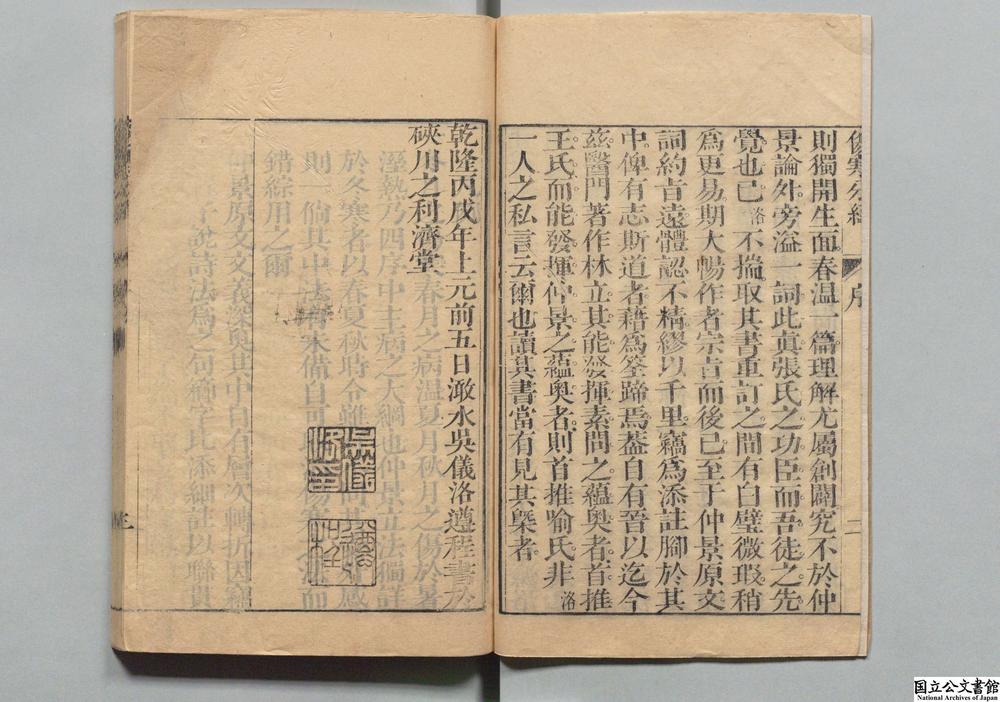 傷寒分經
序
二
則獨開生面春溫一篇理解尤屬創闢究不於仲
景論外旁溢一詞此真張氏之功臣而吾徒之先
覺也已洛不揣取其書重訂之間有白璧微瑕稍
為更易期大暢作者宗旨而後已至于仲景原文
詞約旨遠體認不精繆以千里竊為添註腳於其
中俾有志斯道者藉為筌蹄焉蓋自有晉以迄今
茲醫門著作林立其能發揮素問之蘊奧者首推
王氏而能發揮仲景之蘊奧者則首推喻氏非洛
一人之私言云爾也讀其書當有見其槩者
乾隆丙戌年上元前五日澉水吳儀洛遵程書於
硤川之利濟堂
吳儀洛印
三
国立公文書館
National Archives of Japan